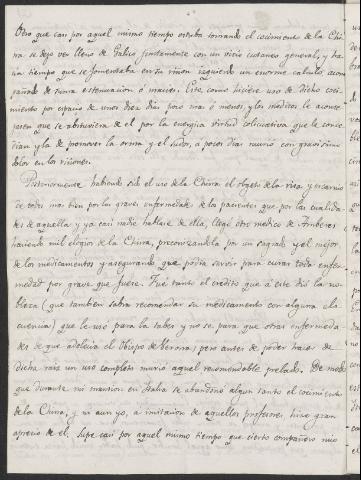 Otro que casi por aquel mismo tiempo estaba tomando el cocimiento de la Chi-
na se dejo ver lleno de Galico juntamente con un vicio cutaneo general, y ha-
un tiempo que se fomentaba en su riñon izquierdo un enorme calculo, acom-
pañado de suma estenuacion ó macies. Este, como hiciere uso de dicho coci-
miento por espacio de unos diez dias poco mas ó menos, y los medicos le aconse-
jasen que se abstuviera de el por la energica virtud colicuativa que le conce-
dian y la de promover la orina y el sudor, a pocos dias murio con gravisimo
dolor en los riñones.
Posteriormente habiendo sido el uso de la China el objeto de la risa y escarnio
de todos mas bien por las graves enfermedades de los pacientes que por las cualida-
des de aquella y ya casi nadie hablase de ella, llegó otro medico de Amberes
haciendo mil elogios de la China, preconizandola por un sagrado y el mejor
de los medicamentos y asegurando que podia servir para curar toda enfer-
medad por grave que fuere. Fue tanto el credito que á este dió la no-
bleza (que tambien sabia recomendar su medicamento con alguna elo-
cuencia) que le uso para la tabes y no se para que otras enfermeda-
des de que adolecia el Obispo de Verona; pero antes de poder hacer de
dicha raiz un uso completo murio aquel recomendable prelado. De modo
que durante mi mansion en Italia se abandonó algun tanto el cocimiento
de la China, y ni aun yo, a imitacion de aquellos profesores, hice gran
aprecio de el. Supe casi por aquel mismo tiempo que cierto compañero mio